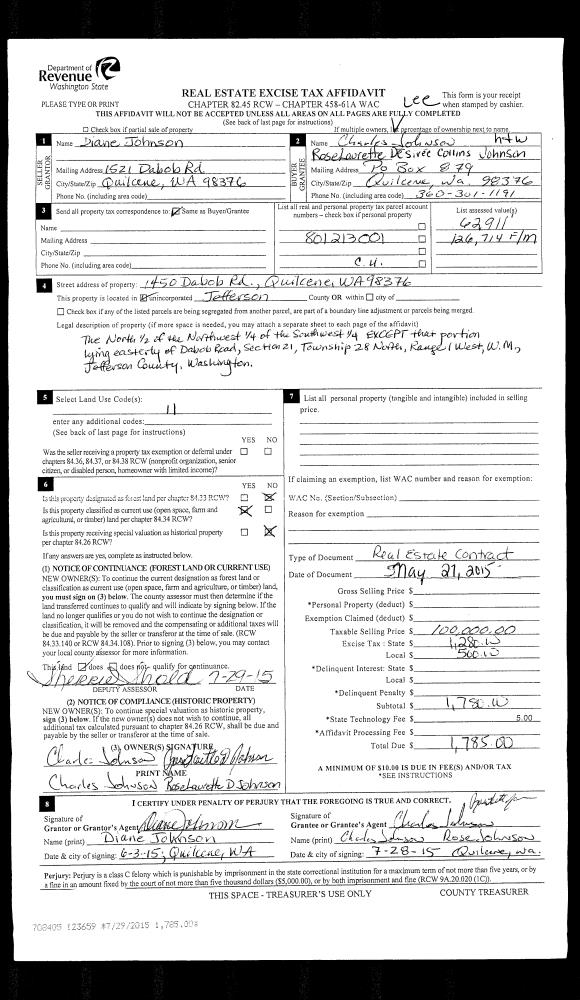 Department of
Revenue
Washington State
PLEASE TYPE OR PRINT
REAL ESTATE EXCISE TAX AFFIDAVIT
CHAPTER 82.45 RCW – CHAPTER 458-61A WAC
This form is your receipt
when stamped by cashier.
THIS AFFIDAVIT WILL NOT BE ACCEPTED UNLESS ALL AREAS ON ALL PAGES ARE FULLY COMPLETED
(See back of last page for instructions)
Lee
Check box if partial sale of property
If multiple owners, list percentage of ownership next to name.
1 Name Diane Johnson
SELLER GRANTOR
Mailing Address 1521 Dabob Rd
City/State/Zip Quilcene, WA 98376
Phone No. (including area code)
2 Name Charles Johnson h+w
BUYER GRANTEE
RoseLaurette Desiree Collins Johnson
Mailing Address Po Box 879
City/State/Zip Quilcene, wa. 98376
Phone No. (including area code) 360-301-1191
3 Send all property tax correspondence to: Same as Buyer/Grantee
Name
Mailing Address
City/State/Zip
Phone No. (including area code)
List all real and personal property tax parcel account
numbers – check box if personal property
801213001
C.U.
List assessed value(s)
62911
126,714 F/M
4 Street address of property: 1450 Dabob Rd., Quilcene, WA 98376
This property is located in unincorporated Jefferson County OR within city of
Check box if any of the listed parcels are being segregated from another parcel, are part of a boundary line adjustment or parcels being merged.
Legal description of property (if more space is needed, you may attach a separate sheet to each page of the affidavit)
The North 1/2 of the Northwest 1/4 of the Southwest 1/4 EXCEPT that portion
lying easterly of Dabob Road, Section 21, Township 28 North, Range 1 West, W.M.,
Jefferson County, Washington.
5 Select Land Use Code(s):
11
enter any additional codes:
(See back of last page for instructions)
YES NO
Was the seller receiving a property tax exemption or deferral under
chapters 84.36, 84.37, or 84.38 RCW (nonprofit organization, senior
citizen, or disabled person, homeowner with limited income)?
6
YES NO
Is this property designated as forest land per chapter 84.33 RCW?
Is this property classified as current use (open space, farm and
agricultural, or timber) land per chapter 84.34 RCW?
Is this property receiving special valuation as historical property
per chapter 84.26 RCW?
If any answers are yes, complete as instructed below.
(1) NOTICE OF CONTINUANCE (FOREST LAND OR CURRENT USE)
NEW OWNER(S): To continue the current designation as forest land or
classification as current use (open space, farm and agriculture, or timber) land,
you must sign on (3) below. The county assessor must then determine if the
land transferred continues to qualify and will indicate by signing below. If the
land no longer qualifies or you do not wish to continue the designation or
classification, it will be removed and the compensating or additional taxes will
be due and payable by the seller or transferor at the time of sale. (RCW
84.33.140 or RCW 84.34.108). Prior to signing (3) below, you may contact
your local county assessor for more information.
This land does does not qualify for continuance.
7-29-15
DEPUTY ASSESSOR DATE
(2) NOTICE OF COMPLIANCE (HISTORIC PROPERTY)
NEW OWNER(S): To continue special valuation as historic property,
sign (3) below. If the new owner(s) does not wish to continue, all
additional tax calculated pursuant to chapter 84.26 RCW, shall be due and
payable by the seller or transferor at the time of sale.
(3) OWNER(S) SIGNATURE
Charles Johnson
PRINT NAME
Charles Johnson RoseLaurette D Johnson
7 List all personal property (tangible and intangible) included in selling
price.
If claiming an exemption, list WAC number and reason for exemption:
WAC No. (Section/Subsection)
Reason for exemption
Type of Document Real Estate Contract
Date of Document May 21, 2015
Gross Selling Price $
*Personal Property (deduct) $
Exemption Claimed (deduct) $
Taxable Selling Price $ 100,000.00
Excise Tax : State $ 1,280.00
Local $ 500.00
*Delinquent Interest: State $
Local $
*Delinquent Penalty $
Subtotal $ 1,780.00
*State Technology Fee $ 5.00
*Affidavit Processing Fee $
Total Due $ 1,785.00
A MINIMUM OF $10.00 IS DUE IN FEE(S) AND/OR TAX
*SEE INSTRUCTIONS
8 I CERTIFY UNDER PENALTY OF PERJURY THAT THE FOREGOING IS TRUE AND CORRECT.
Signature of
Grantor or Grantor's Agent Diane Johnson
Name (print) Diane Johnson
Date & city of signing: 6-3-15; Quilcene, WA
Signature of
Grantee or Grantee's Agent Charles Johnson
Name (print) Charles Johnson Rose Johnson
Date & city of signing: 7-28-15 Quilcene, wa.
Perjury: Perjury is a class C felony which is punishable by imprisonment in the state correctional institution for a maximum term of not more than five years, or by
a fine in an amount fixed by the court of not more than five thousand dollars ($5,000.00), or by both imprisonment and fine (RCW 9A.20.020 (1C)).
THIS SPACE - TREASURER'S USE ONLY
COUNTY TREASURER
708405 123659 #7/29/2015 1,785.00#